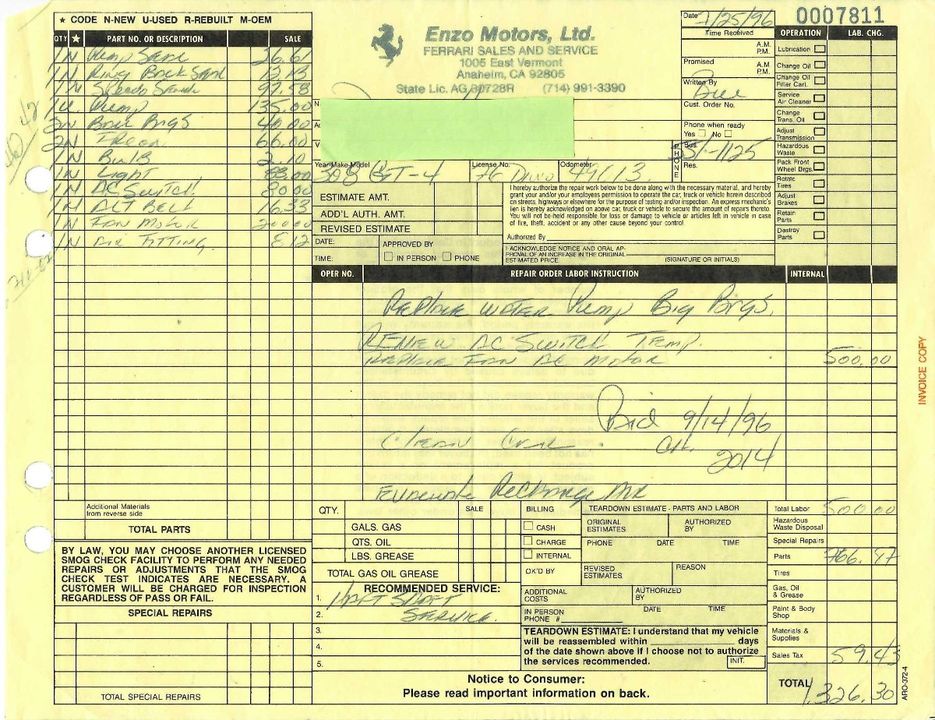 ★ CODE N-NEW U-USED R-REBUILT M-OEM
QTY ★ PART NO. OR DESCRIPTION SALE
1 N Pump 26.61
1 N Ring 12.13
1 N 97.58
1 U Pump 135.00
2 N Brgs 40.00
2 N Freon 60.00
1 N Bulb 2.10
1 N Light 83.00
1 N AC Switch 80.00
1 N ALT Belt 16.33
1 N Fan Motor 200.00
1 N Air Fitting 8.12
Additional Materials
from reverse side
TOTAL PARTS
BY LAW, YOU MAY CHOOSE ANOTHER LICENSED
SMOG CHECK FACILITY TO PERFORM ANY NEEDED
REPAIRS OR ADJUSTMENTS THAT THE SMOG
CHECK TEST INDICATES ARE NECESSARY. A
CUSTOMER WILL BE CHARGED FOR INSPECTION
REGARDLESS OF PASS OR FAIL.
SPECIAL REPAIRS
TOTAL SPECIAL REPAIRS
Enzo Motors, Ltd.
FERRARI SALES AND SERVICE
1005 East Vermont
Anaheim, CA 92805
State Lic. AG 80728R (714) 991-3390
Date 7/25/96
0007811
Time Received
A.M.
P.M.
Promised
A.M.
P.M.
Written By
Cust. Order No.
Phone when ready
Yes No
PHONE
Bus.
-1125
Res.
Year-Make-Model License No. Odometer
308 GT-4 76 Dino
OPERATION LAB. CHG.
Lubrication
Change Oil
Change Oil
Filter Cart.
Service
Air Cleaner
Change
Trans. Oil
Adjust
Transmission
Hazardous
Waste
Pack Front
Wheel Brgs.
Rotate
Tires
Adjust
Brakes
Retain
Parts
Destroy
Parts
ESTIMATE AMT.
ADD'L AUTH. AMT.
REVISED ESTIMATE
DATE:
TIME:
APPROVED BY
IN PERSON PHONE
I hereby authorize the repair work below to be done along with the necessary material, and hereby
grant your and/or your employees permission to operate the car, truck or vehicle herein described
on streets, highways or elsewhere for the purpose of testing and/or inspection. An express mechanic's
lien is hereby acknowledged on above car, truck or vehicle to secure the amount of repairs thereto.
You will not be held responsible for loss or damage to vehicle or articles left in vehicle in case
of fire, theft, accident or any other cause beyond your control.
Authorized By
I ACKNOWLEDGE NOTICE AND ORAL AP-
PROVAL OF AN INCREASE IN THE ORIGINAL
ESTIMATED PRICE.
(SIGNATURE OR INITIALS)
OPER NO. REPAIR ORDER LABOR INSTRUCTION INTERNAL
Replace Water Pump Big Brgs.
Renew AC Switch Temp.
Replace Fan AC Motor 500.00
Paid 9/14/96
Ck.
2014
Evacuate Recharge Air
QTY. SALE
GALS. GAS
QTS. OIL
LBS. GREASE
TOTAL GAS OIL GREASE
RECOMMENDED SERVICE:
1.
2. Service.
3.
4.
5.
BILLING
CASH
CHARGE
INTERNAL
OK'D BY
TEARDOWN ESTIMATE - PARTS AND LABOR
ORIGINAL
ESTIMATES
AUTHORIZED
BY
PHONE DATE TIME
REVISED
ESTIMATES
REASON
ADDITIONAL
COSTS
AUTHORIZED
BY
IN PERSON
PHONE #
DATE TIME
TEARDOWN ESTIMATE: I understand that my vehicle
will be reassembled within days
of the date shown above if I choose not to authorize
the services recommended. INIT.
Notice to Consumer:
Please read important information on back.
Total Labor 500.00
Hazardous
Waste Disposal
Special Repairs
Parts 766.47
Tires
Gas, Oil
& Grease
Paint & Body
Shop
Materials &
Supplies
Sales Tax 59.43
TOTAL 1,326.30
INVOICE COPY
ARO-372-4